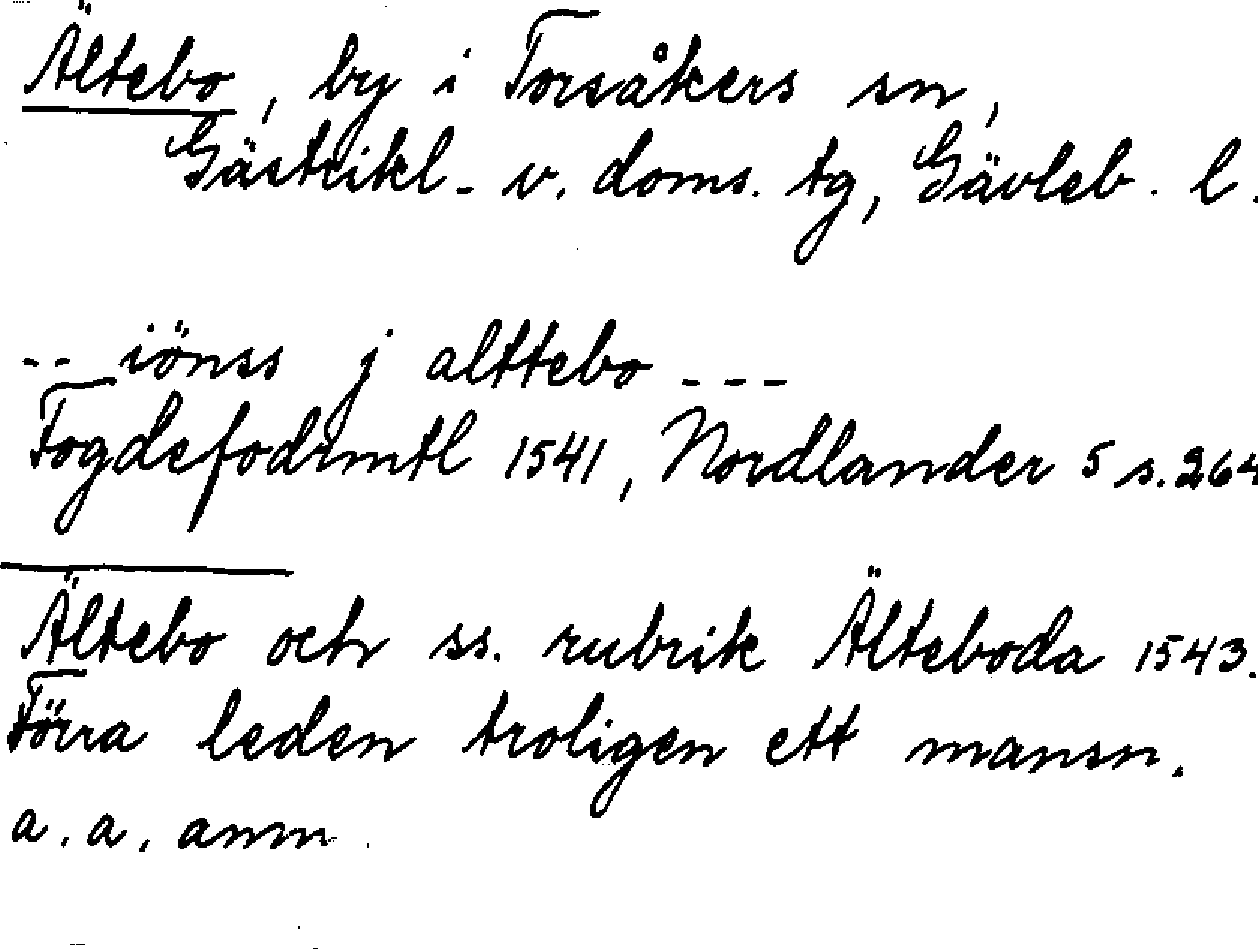 Ältebo, by i Torsåkers sn,
Gästrikl. v. doms. tg, Gävleb. l.
-- iönss j alttebo ---
Fogdefodrmtl 1541, Nordlander 5 s. 264
Ältebo och ss. rubrik Älteboda 1543.
Förra leden troligen ett mansn.
a. a. anm.